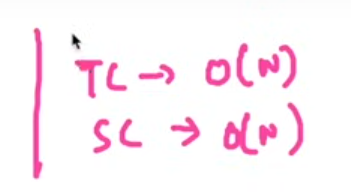 TC → O(N)
SC → O(N)